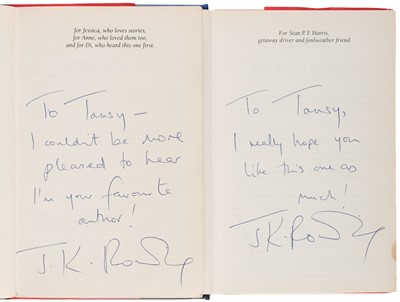 for Jessica, who loves stories,
for Anne, who loved them too,
and for Di, who heard this one first.
To Tansy –
I couldn't be more
pleased to hear
I'm your favourite
author!
J.K. Rowling
For Sean P. F. Harris,
getaway driver and foulweather friend
To Tansy,
I really hope you
like this one as
much!
J.K. Rowling